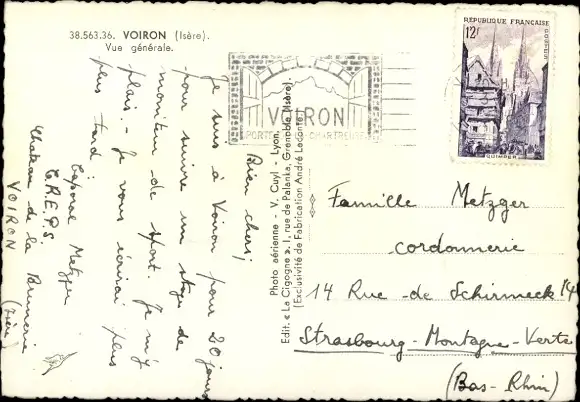 38.563.36. VOIRON (Isère).
Vue générale.
Bien chers,
Je suis à Voiron pour 20 jours
pour suivre un stage de
moniteur de sport. Je m'y
plais. Je vous écrirai plus
plus tard.
Caporal Metzger
C.R.E.P.S.
Chateau de la Brunerie
VOIRON
(Isère)
Photo aérienne - V. Cuyl - Lyon.
Edit. « La Cigogne », 1, rue de Palanka, Grenoble (Isère).
(Exclusivité de Fabrication André Leconte)
VOIRON
PORTE DE CHARTREUSE
RÉPUBLIQUE FRANÇAISE
12f
QUIMPER
Famille Metzger
cordonnerie
14 Rue de Schirmeck
Strasbourg - Montagne - Verte
(Bas-Rhin)